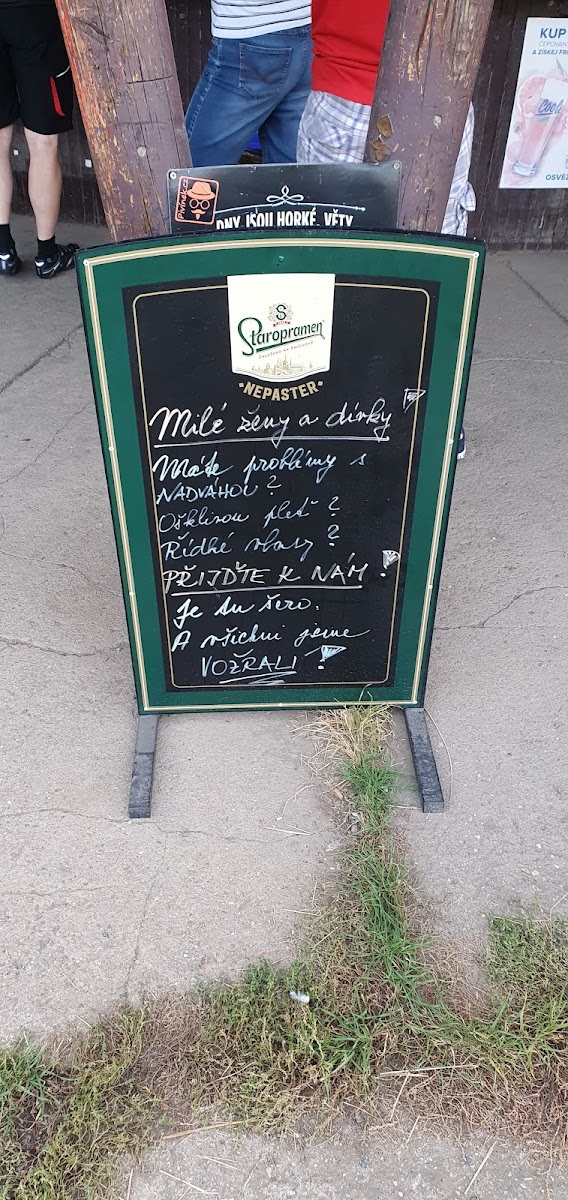 KUP
ČEPOVAN
A ZÍSKEJ FRI
COOL
OSVĚŽ
DNY JSOU HORKÉ, VĚTY
Staropramen
• NEPASTER •
Milé ženy a dívky !
Máte problémy s
NADVÁHOU ?
Ošklivou pleť ?
Řídké vlasy ?
PŘIJĎTE K NÁM !
Je tu šero.
A všichni jsme
VOŽRALI !